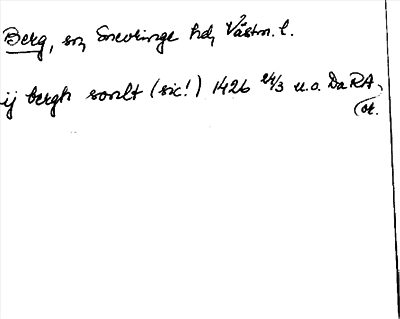 Berg, sn, Snevringe hd, Västm. l.
ij bergh sonlt (sic!) 1426 24/3 u.o. DaRA,
or.